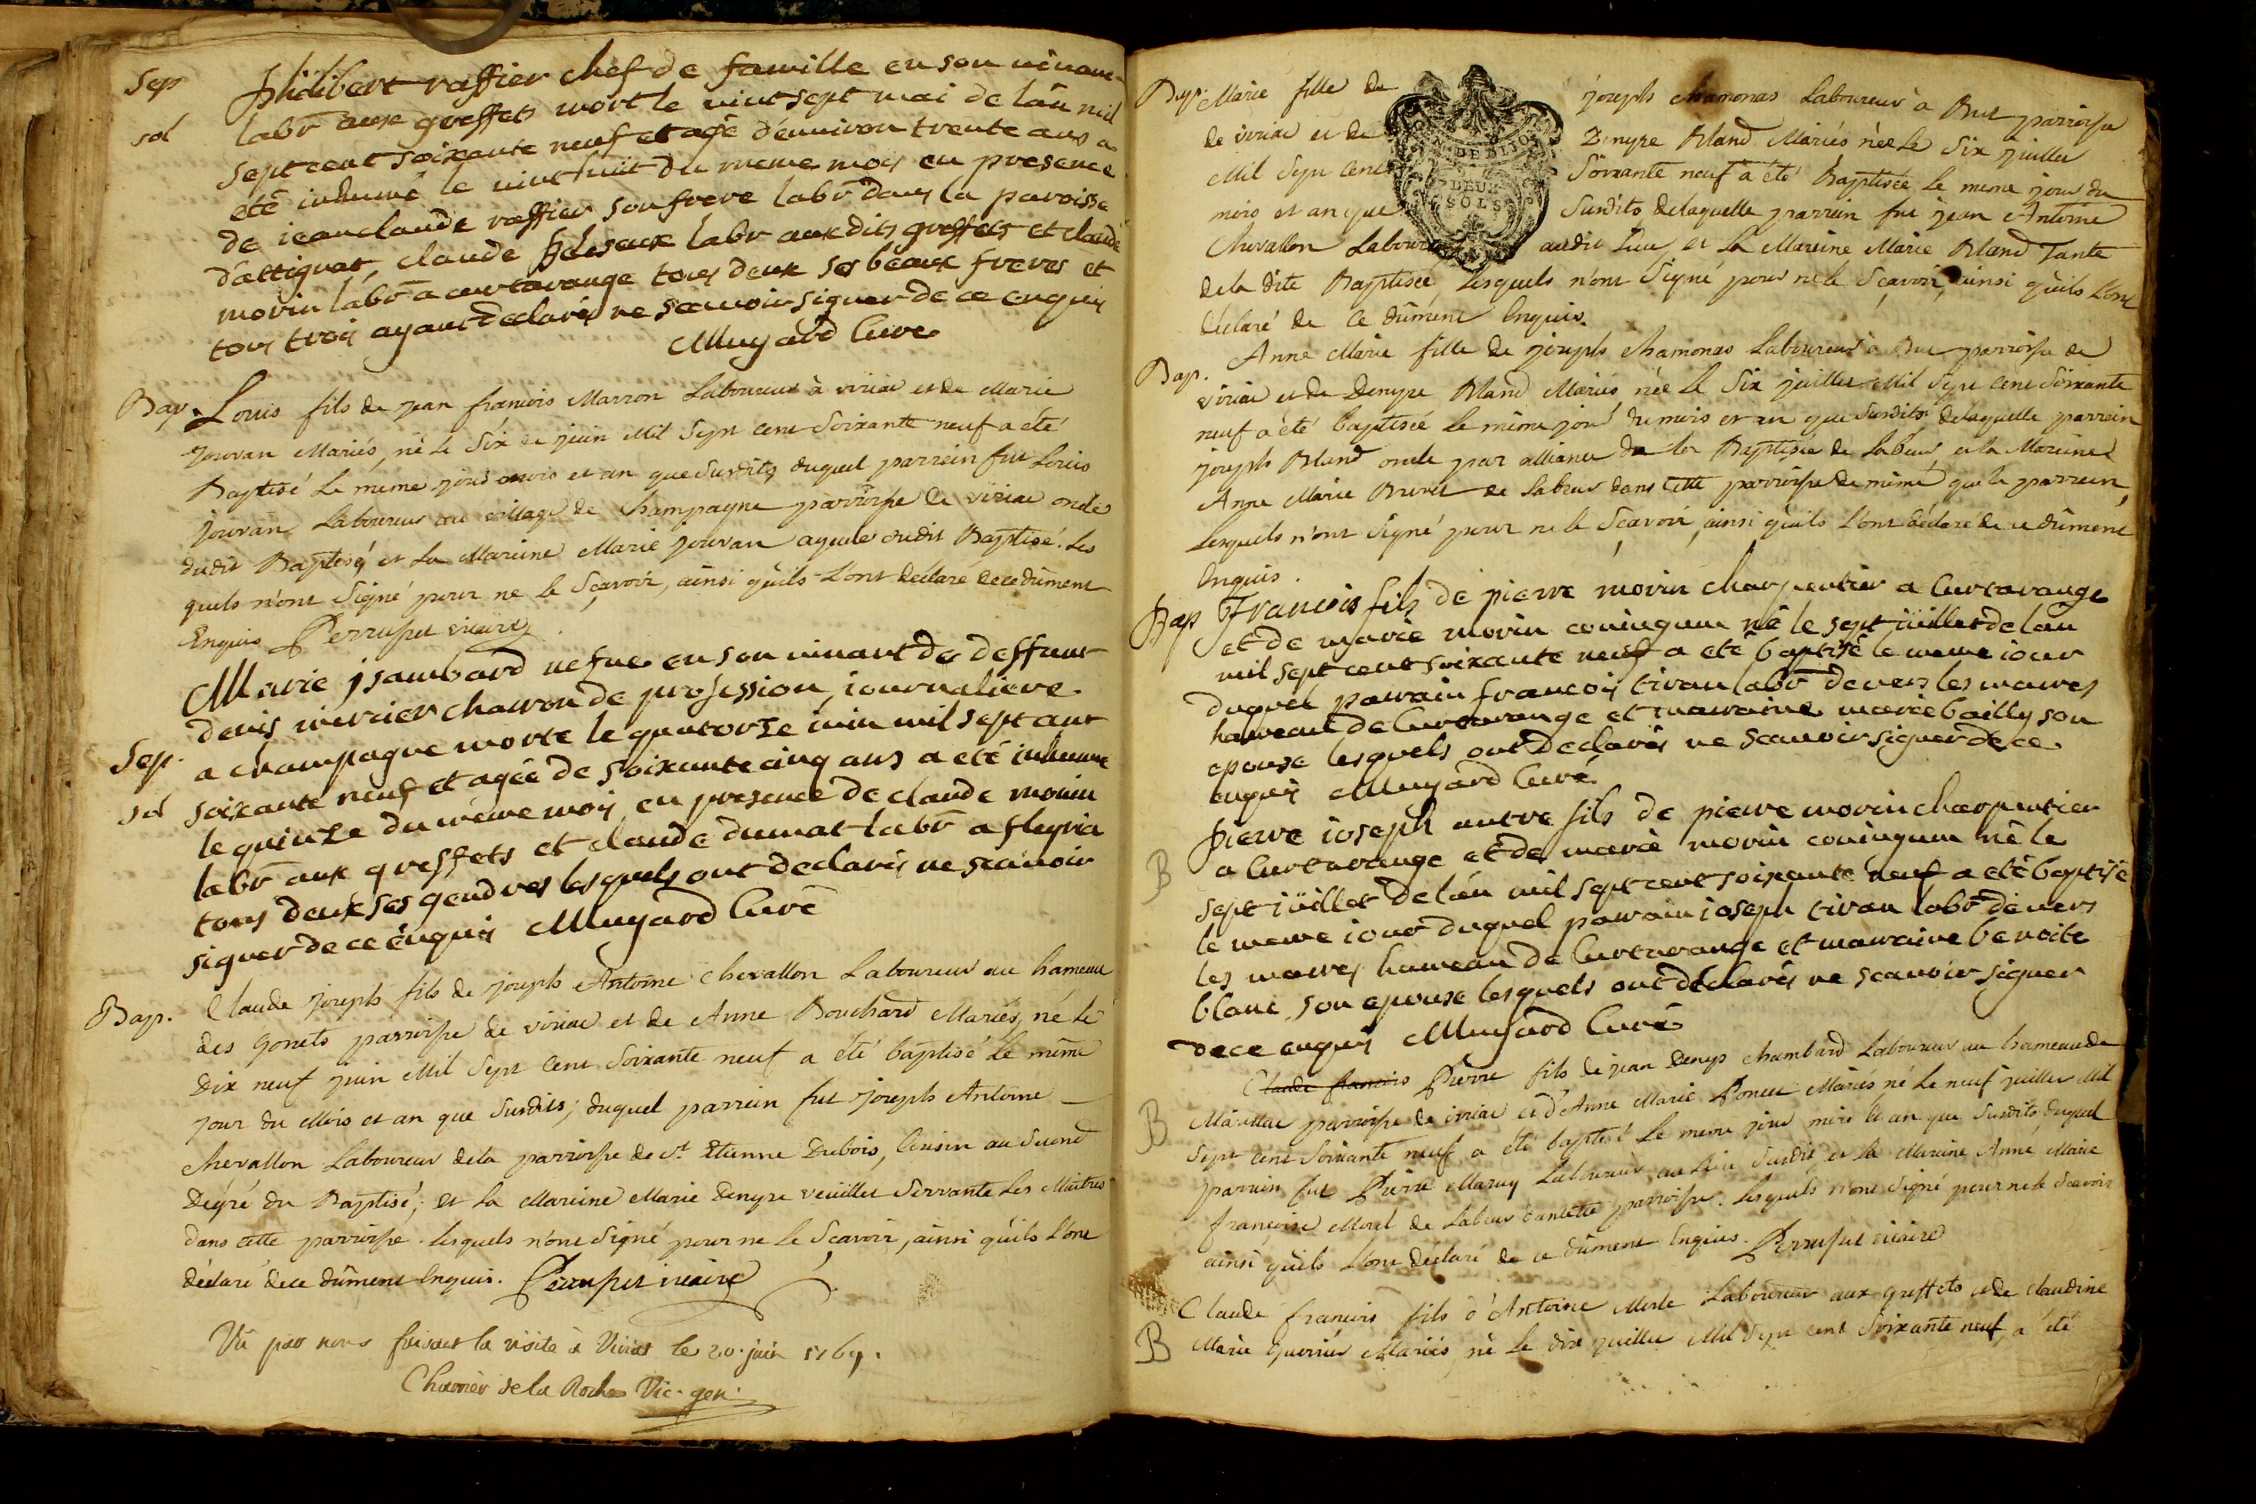 Sep
sol
philibert raffier chef de famille en son vivant
labr aux greffets mort le vint sept mai de lan mil
sept cent soixante neuf et agé d'environ trente ans a
eté inhumé le vint huit du meme mois en presence
de jean claude raffier son frere labr dans la paroisse
d'attignat, claude labr aux dits greffets et claude
morin labr a curtarange tous deux ses beaux freres et
tous trois ayant declarés ne scavoir signer de ce enquis
Muyard Curé
Bap. Louis fils de jean francois Marron Laboureur à viriac et de Marie
jouvan Mariés, né le Six de juin Mil Sept cent Soixante neuf a été
Baptisé le meme jour mois et an que Susdits, duquel parrein fut Louis
jouvan Laboureur au village de Champagne parroisse de viriac oncle
dudit Baptisé, et la Mareine Marie jouvan ayeule dudit Baptisé. Les
quels n'ont Signé pour ne le Sçavoir, ainsi qu'ils l'ont déclaré de ce dûment
Enquis Perruset vicaire
Sep.
sol
Marie jsambard vefve en son vivant de deffunt
denis mercier charron de profession, journaliere
a champagne morte le quatorze juin mil sept cent
soixante neuf et agée de soixante cinq ans a eté inhumé
le quinze du même mois en presence de claude morin
labr aux greffets et claude dumat labr a fleyria
tous deux ses gendres lesquels ont declarés ne scavoir
signer de ce enquis Muyard Curé
Bap. Claude joseph fils de joseph Antoine chevallon Laboureur au hameau
des gonets parroisse de viriac et de Anne Bouchard Mariés, né le
Dix neuf juin Mil Sept cent Soixante neuf a été baptisé le même
jour du Mois et an que Susdits; duquel parrein fut joseph Antoine
Chevallon Laboureur de la parroisse de St Etienne Dubois, Cousin au Second
Degré du Baptisé; et la Mareine Marie Denyse veuillet Servante Les Maitres
dans cette parroisse. lesquels n'ont Signé pour ne le Sçavoir, ainsi qu'ils l'ont
déclaré de ce dûment Enquis. Perruset vicaire
Vû par nous faisant la visite à Viriat le 20. juin 1769.
Charrier de la Roche Vic. gen.
Bap. Marie fille de joseph chamonas Laboureur à But parroisse
de viriac et de Denyse Bland Mariés née le Six juillet
Mil Sept Cent Soixante neuf a été Baptisée le meme jour du
mois et an que Susdits, de laquelle parrein fut jean Antoine
Chevallon Laboureur audit Lieu, et la Mareine Marie Bland Tante
de la dite Baptisée Lesquels n'ont Signé pour ne le Sçavoir, ainsi qu'ils l'ont
déclaré de Ce dûment Enquis.
DEUX
SOLS
Bap. Anne Marie fille de joseph chamonas Laboureur à But parroisse de
viriac et de Denyse Bland Mariés, née Le Six juillet Mil Sept cent Soixante
neuf a été baptisée le même jour du mois et an que Susdits de laquelle parrein
joseph Bland oncle par alliance de la Baptisée de labeur, et la Mareine
Anne Marie Brevet de labeur dans Cette parroisse de même que le parrein,
Lesquels n'ont Signé pour ne le Sçavoir, ainsi qu'ils l'ont déclaré de ce dûment
Enquis.
Bap François fils de pierre morin charpentier a Curtarange
et de marie morin conjugum né le sept juillet de lan
mil sept cent soixante neuf a eté baptisé le meme jour
duquel parrain francois tiran labr devers les mares
hameau de Curtarange et marraine marie bailly son
epouse lesquels ont declarés ne scavoir signer de ce
enquis Muyard Curé
B
pierre joseph autre fils de pierre morin charpentier
a Curtarange et de marie morin conjugum né le
sept juillet de lan mil sept cent soixante neuf a eté baptisé
le meme jour duquel parrain joseph tiran labr devers
les mares hameau de Curtarange et marraine benoite
blanc son epouse lesquels ont declarés ne scavoir signer
de ce enquis Muyard Curé
B
Claude francois Pierre fils de jean Denys Chambard Laboureur au hameau de
parroisse de viriac et d'Anne Marie Poncet Mariés né le neuf juillet Mil
Sept Cent Soixante neuf a été baptisé Le meme jour mois et an que Susdits, duquel
parrein fut Pierre Laboureur au lieu Susdit et la Mareine Anne Marie
françoise Morel de labeur dans cette parroisse. Lesquels n'ont Signé pour ne le Scavoir
ainsi qu'ils l'ont déclaré de ce dûment Enquis. Perruset vicaire
B
Claude francois fils d'Antoine Merle Laboureur aux greffets et de Claudine
Marie Guerrier Mariés, né le dix juillet Mil Sept cent Soixante neuf a été